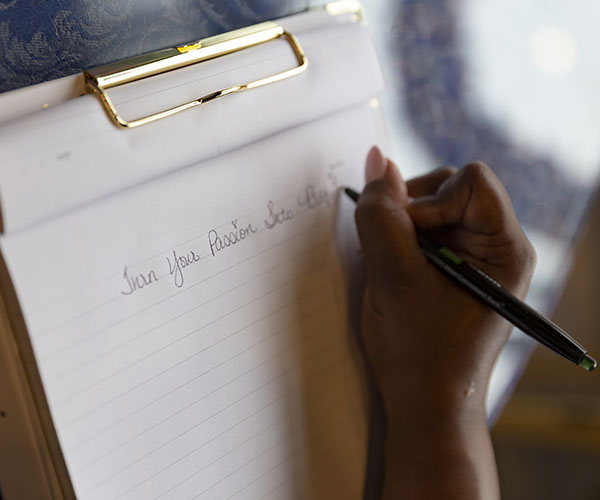 Turn Your Passion Into